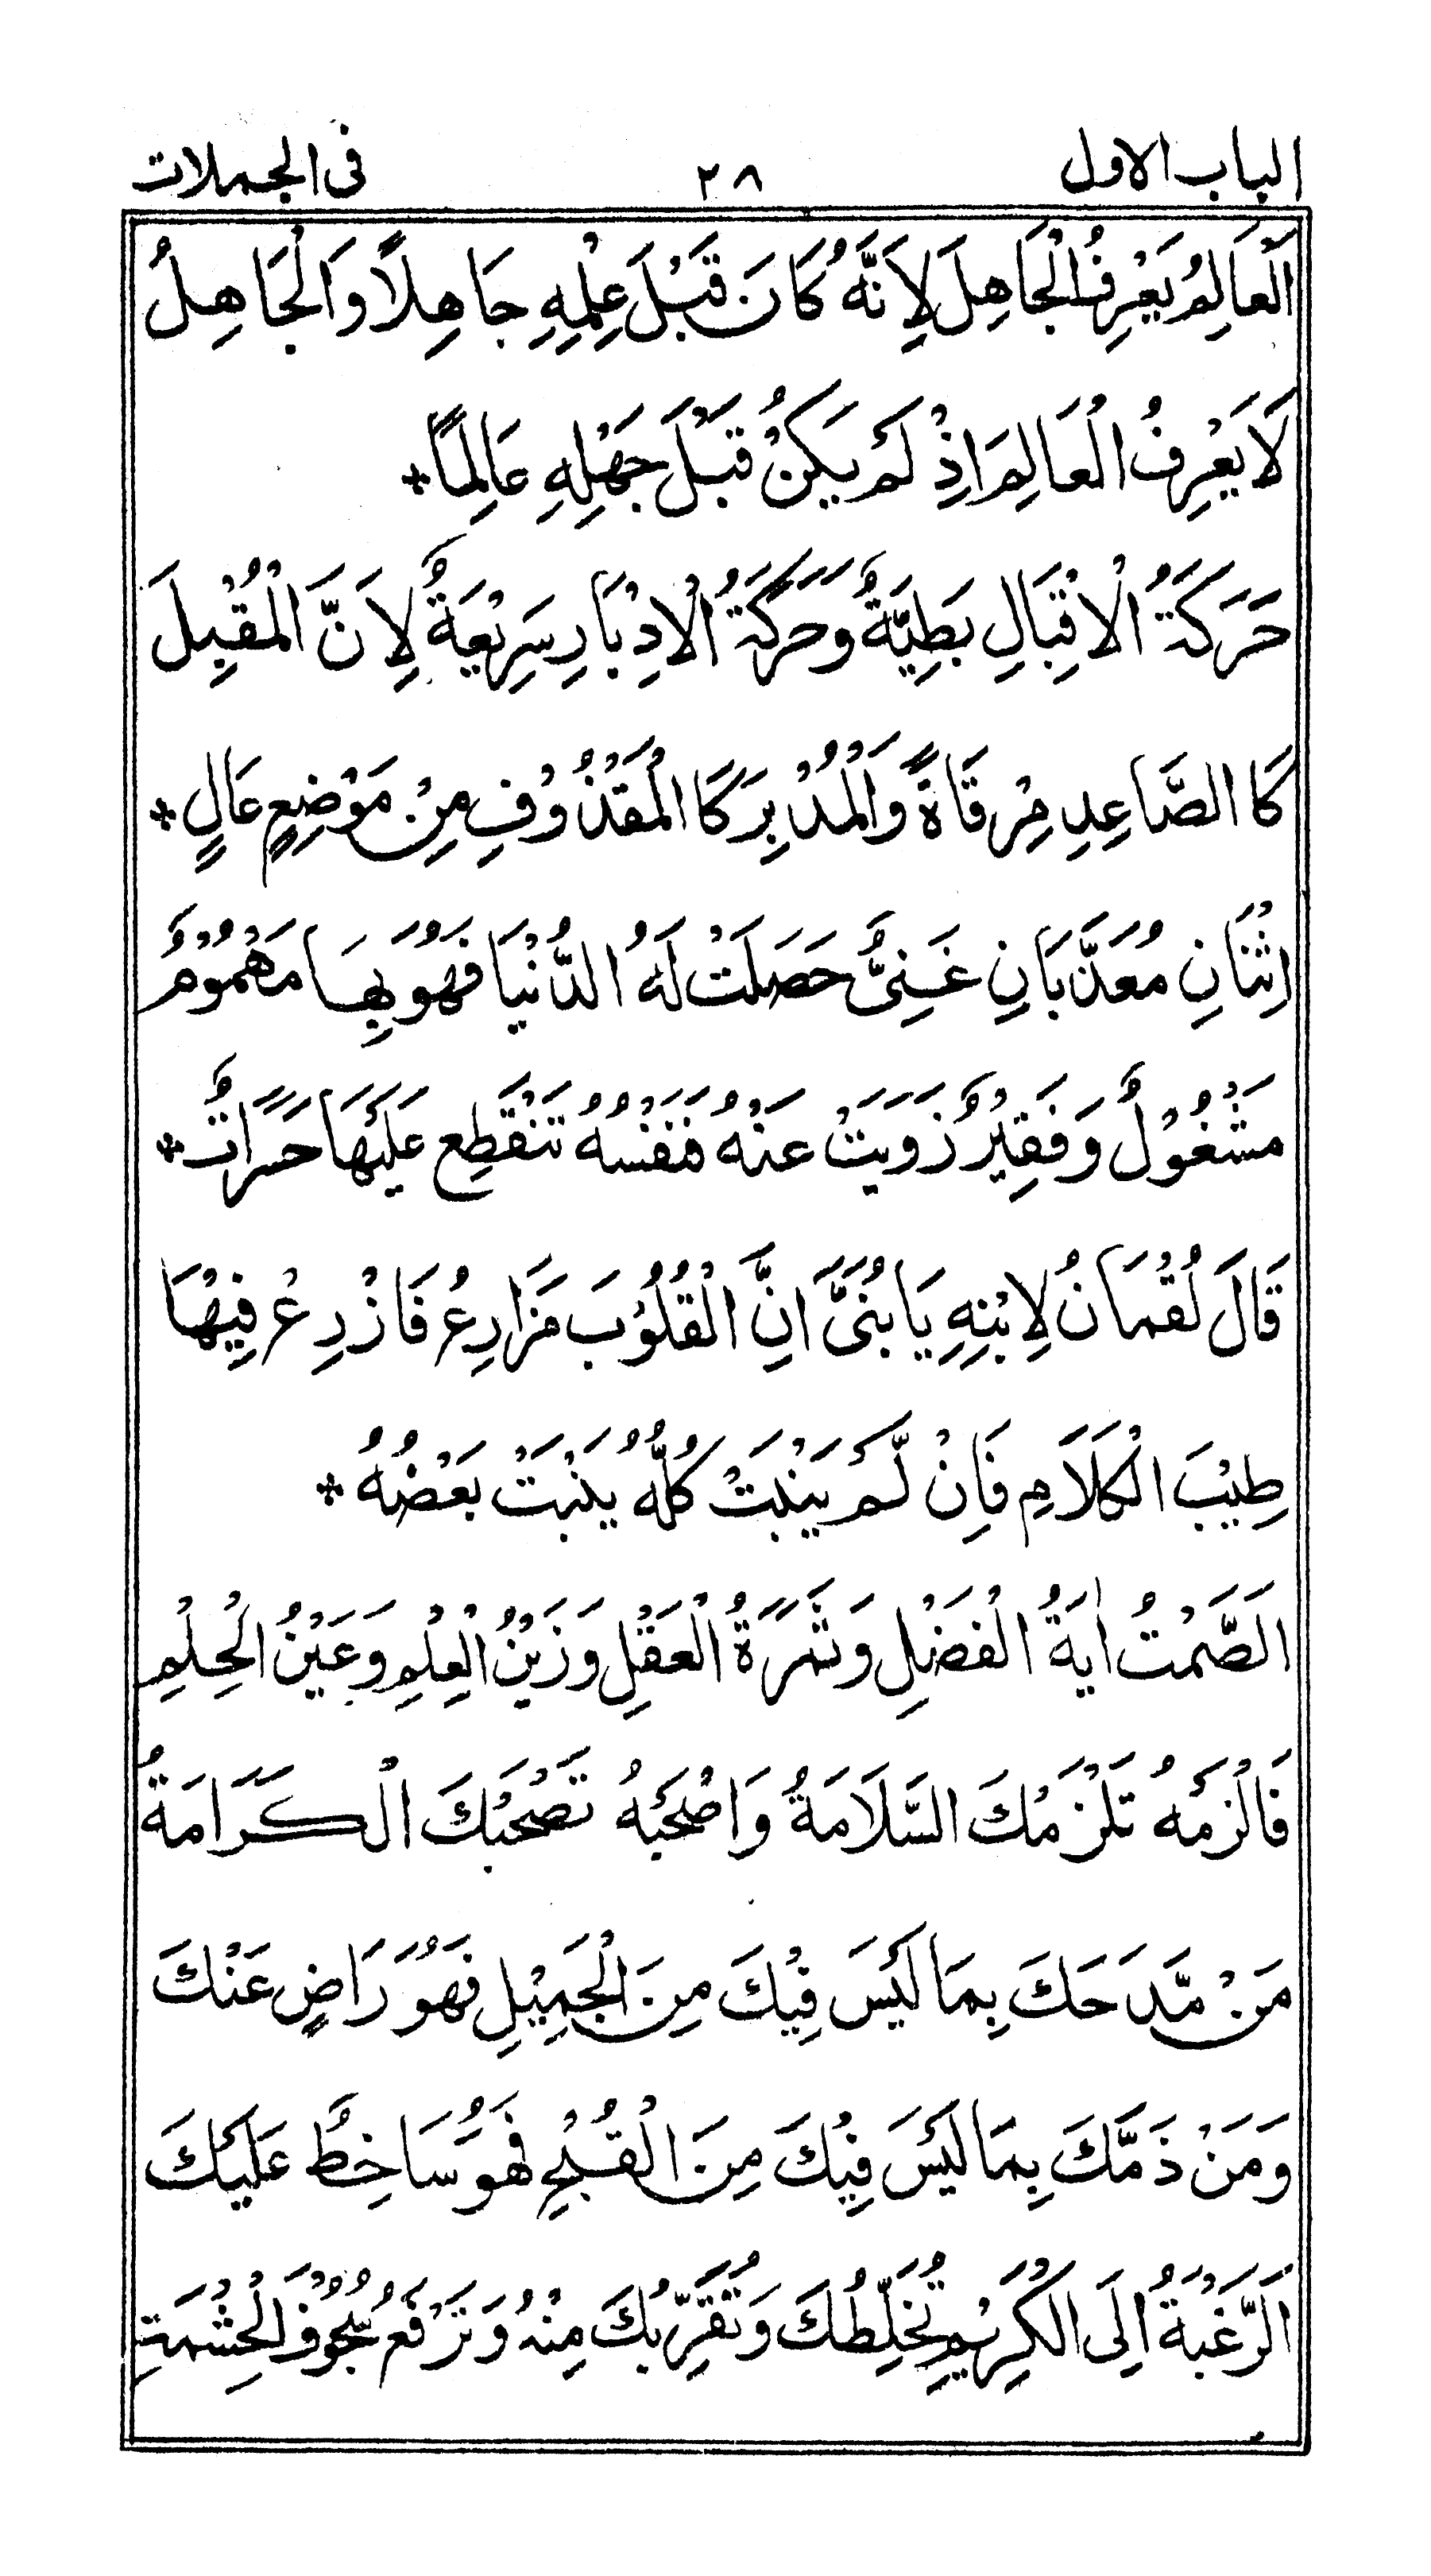 الباب الاول ٢٨ فى الجملات
اَلْعَالِمُ يَعْرِفُ الْجَاهِلَ لِاَنَّهٗ كَانَ قَبْلَ عِلْمِهٖ جَاهِلًا وَالْجَاهِلُ
لَا يَعْرِفُ الْعَالِمَ اِذْ لَمْ يَكُنْ قَبْلَ جَهْلِهٖ عَالِمًا *
حَرَكَةُ الْاِقْبَالِ بَطِيَّةٌ وَحَرَكَةُ الْاِدْبَارِ سَرِيْعَةٌ لِاَنَّ الْمُقْبِلَ
كَا الصَّاعِدِ مِرْقَاةً وَالْمُدْبِرَ كَا الْمَقْذُوْفِ مِنْ مَوْضِعٍ عَالٍ *
اِثْنَانِ مُعَذَّبَانِ غَنِىٌّ حَصَلَتْ لَهُ الدُّنْيَا فَهُوَ بِهَا مَهْمُوْمٌ
مَشْغُوْلٌ وَفَقِيْرٌ زُوِيَتْ عَنْهُ فَنَفْسُهُ تَنْقَطِع عَلَيْهَا حَسَرَاتٌ *
قَالَ لُقْمَانُ لِابْنِهٖ يَا بُنَىَّ اِنَّ الْقُلُوْبَ مَزَارِعُ فَازْرِعْ فِيْهَا
طِيْبَ الْكَلَامِ فَاِنْ لَّمْ يَنْبُتْ كُلُّهُ يَنْبُتْ بَعْضُهُ *
اَلصَّمْتُ اٰيَةُ الْفَضْلِ وَثَمَرَةُ الْعَقْلِ وَزَيْنُ الْعِلْمِ وَعَيْنُ الْحِلْمِ
فَالْزَمْهُ تَلْزَمْكَ السَّلَامَةُ وَاصْحَبْهُ تَصْحَبْكَ الْكَرَامَةُ
مَنْ مَّدَحَكَ بِمَا لَيْسَ فِيْكَ مِنَ الْجَمِيْلِ فَهُوَ رَاضٍ عَنْكَ
وَمَنْ ذَمَّكَ بِمَا لَيْسَ فِيْكَ مِنَ الْقُبْحِ فَهُوَ سَاخِطٌ عَلَيْكَ
اَلرَّغْبَةُ اِلَى الْكَرِيْمِ تُخَلِّطُكَ وَتُقَرِّبُكَ مِنْهُ وَتَرْفَعُ سُجُوْفَ الْحِشْمَةِ